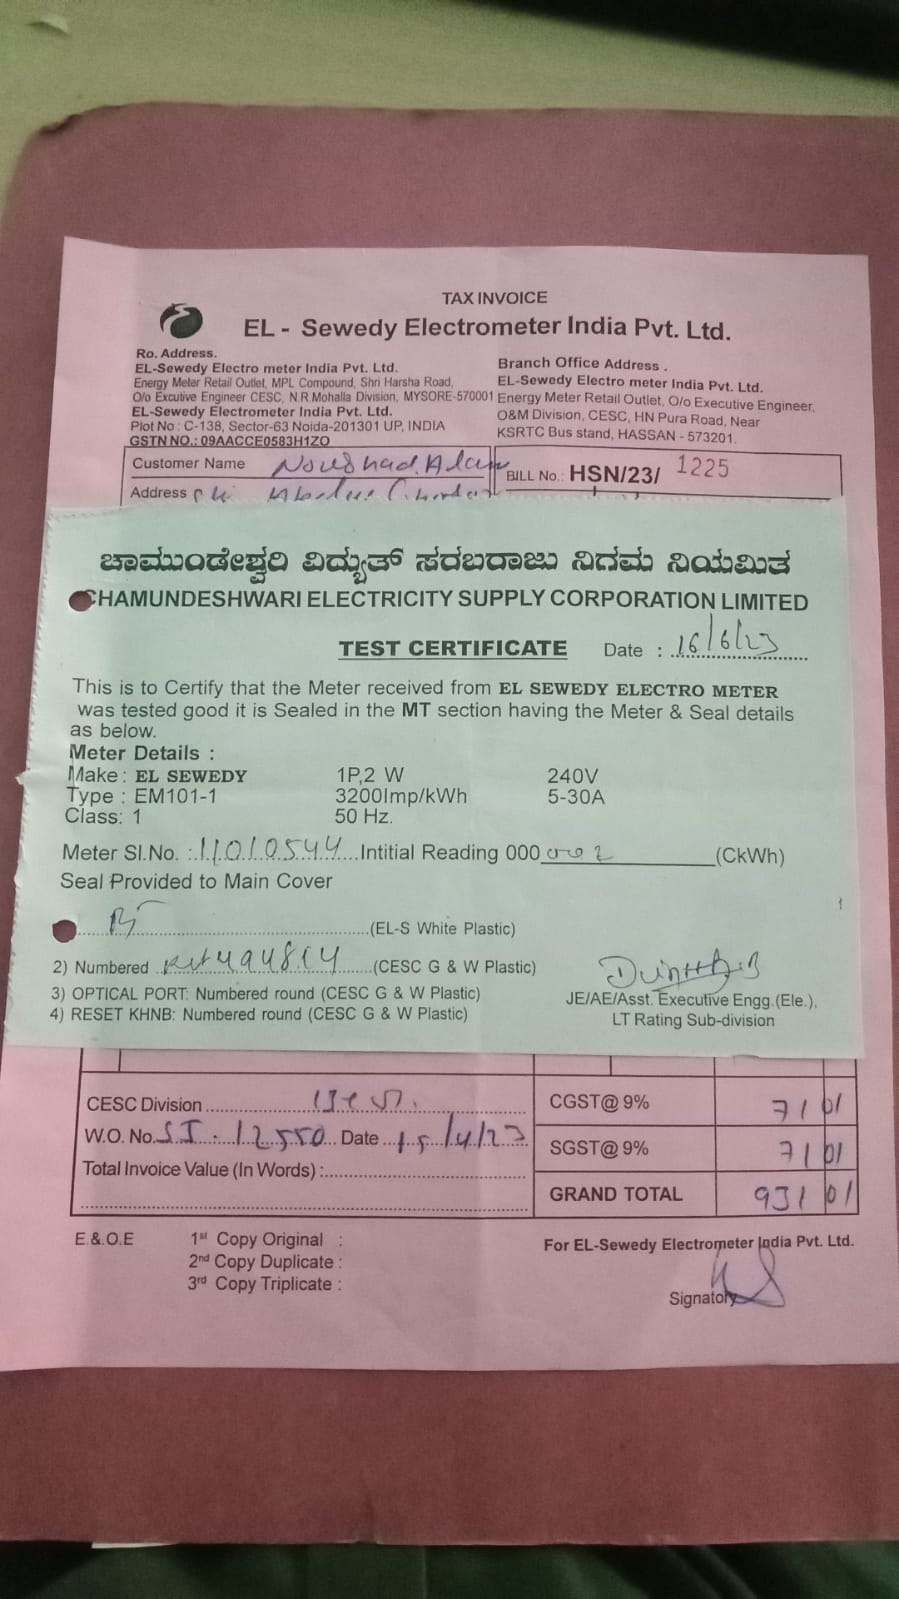 TAX INVOICE
EL - Sewedy Electrometer India Pvt. Ltd.
Ro. Address.
EL-Sewedy Electro meter India Pvt. Ltd.
Energy Meter Retail Outlet, MPL Compound, Shri Harsha Road,
O/o Excutive Engineer CESC, N.R Mohalla Division, MYSORE-570001
EL-Sewedy Electrometer India Pvt. Ltd.
Plot No : C-138, Sector-63 Noida-201301 UP, INDIA
GSTN NO.: 09AACCE0583H1ZO
Branch Office Address .
EL-Sewedy Electro meter India Pvt. Ltd.
Energy Meter Retail Outlet, O/o Executive Engineer,
O&M Division, CESC, HN Pura Road, Near
KSRTC Bus stand, HASSAN - 573201.
Customer Name Noushad Alam
BILL No.: HSN/23/ 1225
Address
ಚಾಮುಂಡೇಶ್ವರಿ ವಿದ್ಯುತ್ ಸರಬರಾಜು ನಿಗಮ ನಿಯಮಿತ
CHAMUNDESHWARI ELECTRICITY SUPPLY CORPORATION LIMITED
TEST CERTIFICATE Date : 16/6/23
This is to Certify that the Meter received from EL SEWEDY ELECTRO METER
was tested good it is Sealed in the MT section having the Meter & Seal details
as below.
Meter Details :
Make : EL SEWEDY 1P,2 W 240V
Type : EM101-1 3200Imp/kWh 5-30A
Class: 1 50 Hz.
Meter Sl.No. : 11010544 Intitial Reading 000 002 (CkWh)
Seal Provided to Main Cover
(EL-S White Plastic)
2) Numbered (CESC G & W Plastic)
3) OPTICAL PORT: Numbered round (CESC G & W Plastic)
4) RESET KHNB: Numbered round (CESC G & W Plastic)
JE/AE/Asst. Executive Engg.(Ele.),
LT Rating Sub-division
CESC Division
CGST@ 9% 71 01
W.O. No. SI. 12550 Date 15/4/23
SGST@ 9% 71 01
Total Invoice Value (In Words) :
GRAND TOTAL 931 01
E & O.E
1st Copy Original :
2nd Copy Duplicate :
3rd Copy Triplicate :
For EL-Sewedy Electrometer India Pvt. Ltd.
Signatory